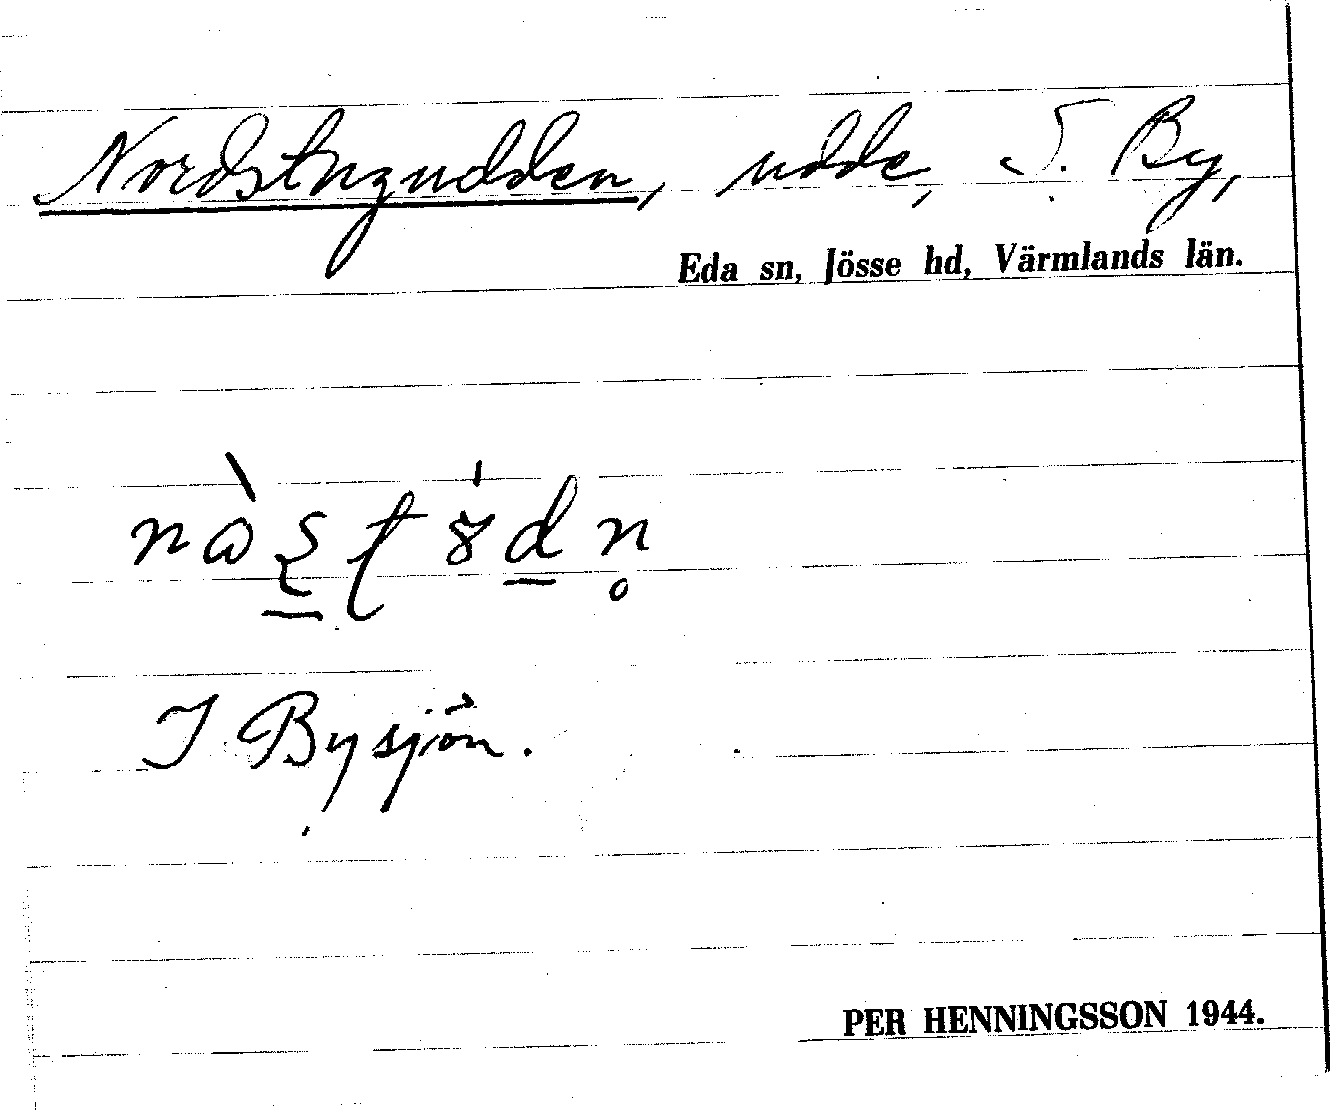 Nordstugudden, udde, S. By,
Eda sn, Jösse hd, Värmlands län.
I Bysjön.
PER HENNINGSSON 1944.